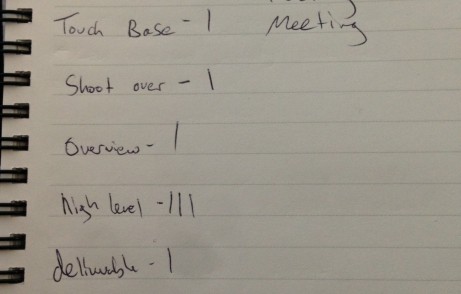 Touch Base - | Meeting
Shoot over - |
Overview - |
high level - |||
deliverable - |